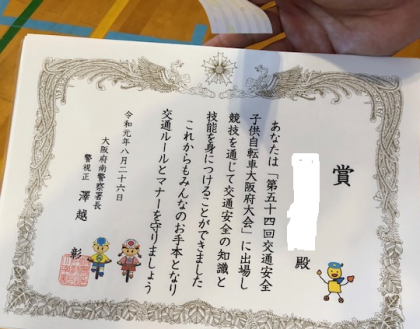 賞
殿
あなたは「第五十四回交通安全
子供自転車大阪府大会」に出場し
競技を通じて交通安全の知識と
技能を身につけることができました
これからもみんなのお手本となり
交通ルールとマナーを守りましょう
令和元年八月二十六日
大阪府南警察署長
警視正 澤越 彰